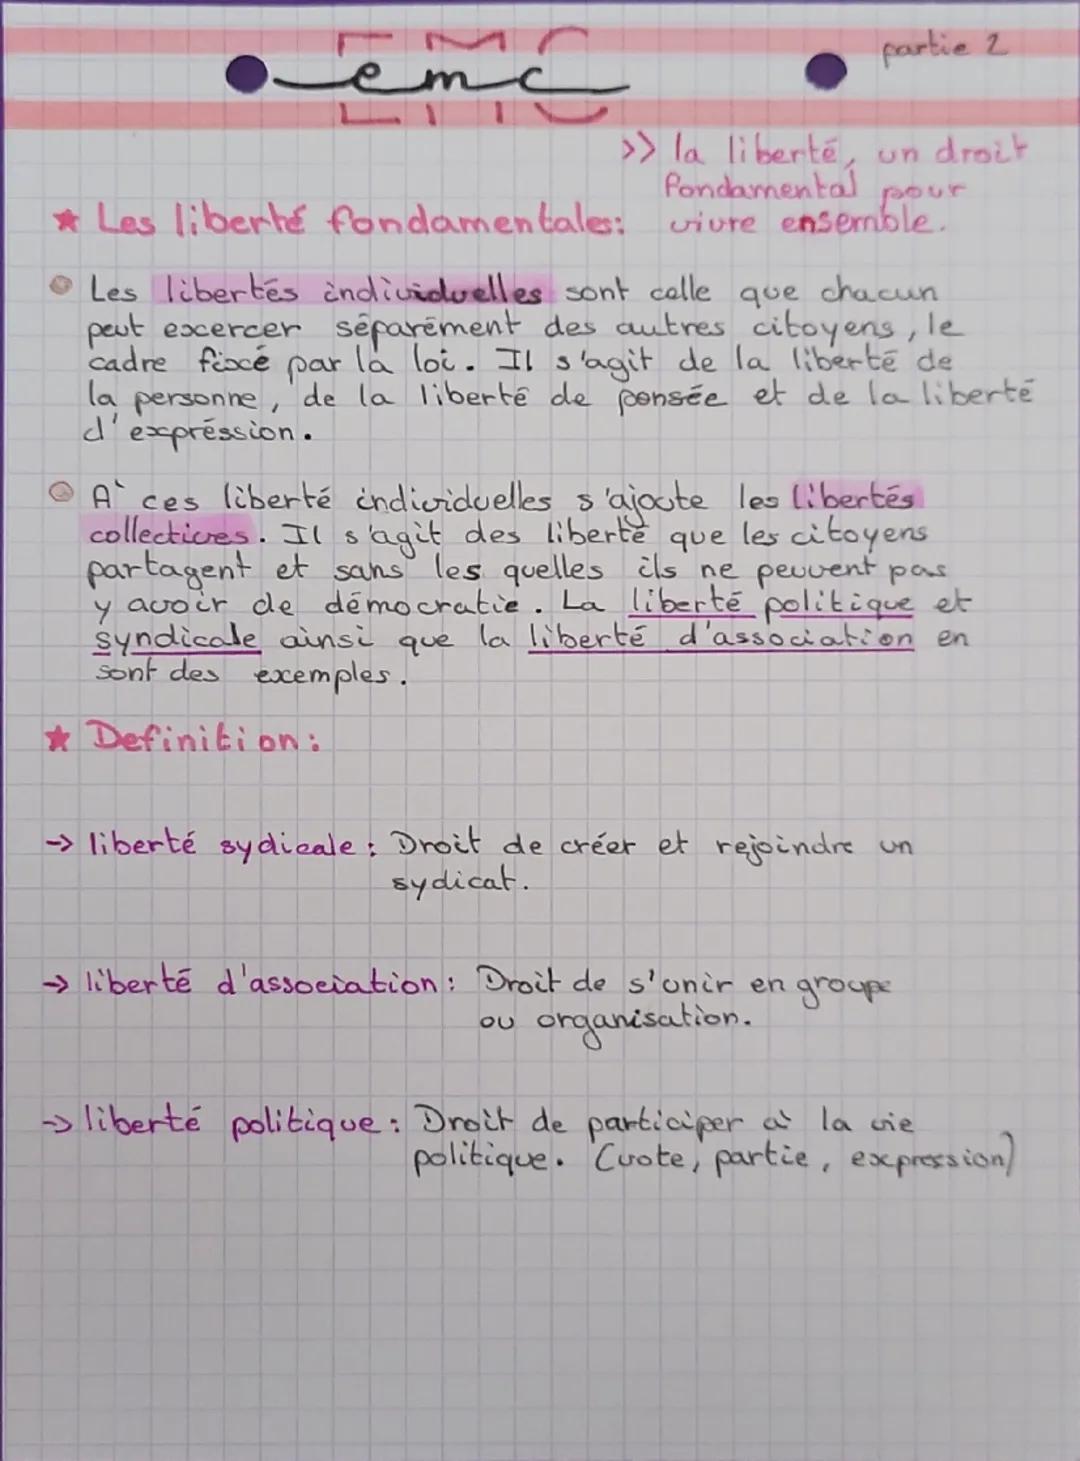 partie 2
EMC
emc
>> la liberté, un droit
fondamental pour
vivre ensemble.
★ Les liberté fondamentales:
Les libertés individuelles sont celle que chacun
peut excercer séparément des autres citoyens, le
cadre fixé par la loi. Il s'agit de la liberté de
la personne, de la liberté de pensée et de la liberté
d'expréssion.
A' ces liberté individuelles s'ajoute les libertés
collectives. Il s'agit des liberté que les citoyens
partagent et sans les quelles ils ne peuvent pas
y avoir de démocratie. La liberté politique et
syndicale ainsi que la liberté d'association en
sont des exemples.
★ Definition:
-> liberté sydicale: Droit de créer et rejoindre un
sydicat.
-> liberté d'association: Droit de s'unir en groupe
ou organisation.
-> liberté politique: Droit de participer à la vie
politique. (vote, partie, expression)